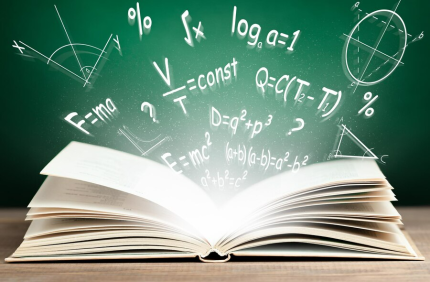 %
∫x
log_a a=1
x y
a b
V/T=const
Q=C(T₂-T₁)
%
F=ma
?
D=q²+p³
?
E=mc²
(a+b)(a-b)=a²-b²
a²+b²=c²
c